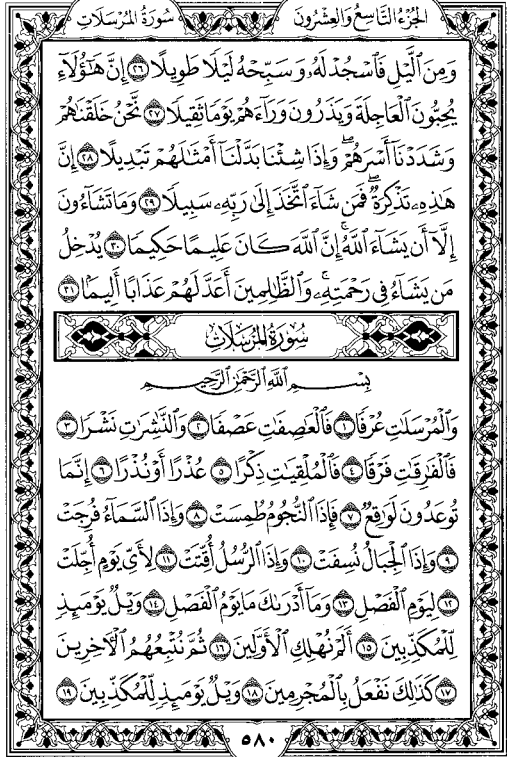 سُورَةُ المُرْسَلَات الجُزْءُ التَّاسِعُ وَالعِشْرُونَ
وَمِنَ ٱلَّيْلِ فَٱسْجُدْ لَهُۥ وَسَبِّحْهُ لَيْلًا طَوِيلًا ٢٦ إِنَّ هَٰٓؤُلَآءِ
يُحِبُّونَ ٱلْعَاجِلَةَ وَيَذَرُونَ وَرَآءَهُمْ يَوْمًا ثَقِيلًا ٢٧ نَّحْنُ خَلَقْنَٰهُمْ
وَشَدَدْنَآ أَسْرَهُمْ ۖ وَإِذَا شِئْنَا بَدَّلْنَآ أَمْثَٰلَهُمْ تَبْدِيلًا ٢٨ إِنَّ
هَٰذِهِۦ تَذْكِرَةٌ ۖ فَمَن شَآءَ ٱتَّخَذَ إِلَىٰ رَبِّهِۦ سَبِيلًا ٢٩ وَمَا تَشَآءُونَ
إِلَّآ أَن يَشَآءَ ٱللَّهُ ۚ إِنَّ ٱللَّهَ كَانَ عَلِيمًا حَكِيمًا ٣٠ يُدْخِلُ
مَن يَشَآءُ فِى رَحْمَتِهِۦ ۚ وَٱلظَّٰلِمِينَ أَعَدَّ لَهُمْ عَذَابًا أَلِيمًۢا ٣١
سُورَةُ المُرْسَلَاتِ
بِسْمِ ٱللَّهِ ٱلرَّحْمَٰنِ ٱلرَّحِيمِ
وَٱلْمُرْسَلَٰتِ عُرْفًا ١ فَٱلْعَٰصِفَٰتِ عَصْفًا ٢ وَٱلنَّٰشِرَٰتِ نَشْرًا ٣
فَٱلْفَٰرِقَٰتِ فَرْقًا ٤ فَٱلْمُلْقِيَٰتِ ذِكْرًا ٥ عُذْرًا أَوْ نُذْرًا ٦ إِنَّمَا
تُوعَدُونَ لَوَٰقِعٌ ٧ فَإِذَا ٱلنُّجُومُ طُمِسَتْ ٨ وَإِذَا ٱلسَّمَآءُ فُرِجَتْ
٩ وَإِذَا ٱلْجِبَالُ نُسِفَتْ ١٠ وَإِذَا ٱلرُّسُلُ أُقِّتَتْ ١١ لِأَىِّ يَوْمٍ أُجِّلَتْ
١٢ لِيَوْمِ ٱلْفَصْلِ ١٣ وَمَآ أَدْرَىٰكَ مَا يَوْمُ ٱلْفَصْلِ ١٤ وَيْلٌ يَوْمَئِذٍ
لِّلْمُكَذِّبِينَ ١٥ أَلَمْ نُهْلِكِ ٱلْأَوَّلِينَ ١٦ ثُمَّ نُتْبِعُهُمُ ٱلْءَاخِرِينَ
١٧ كَذَٰلِكَ نَفْعَلُ بِٱلْمُجْرِمِينَ ١٨ وَيْلٌ يَوْمَئِذٍ لِّلْمُكَذِّبِينَ ١٩
٥٨٠